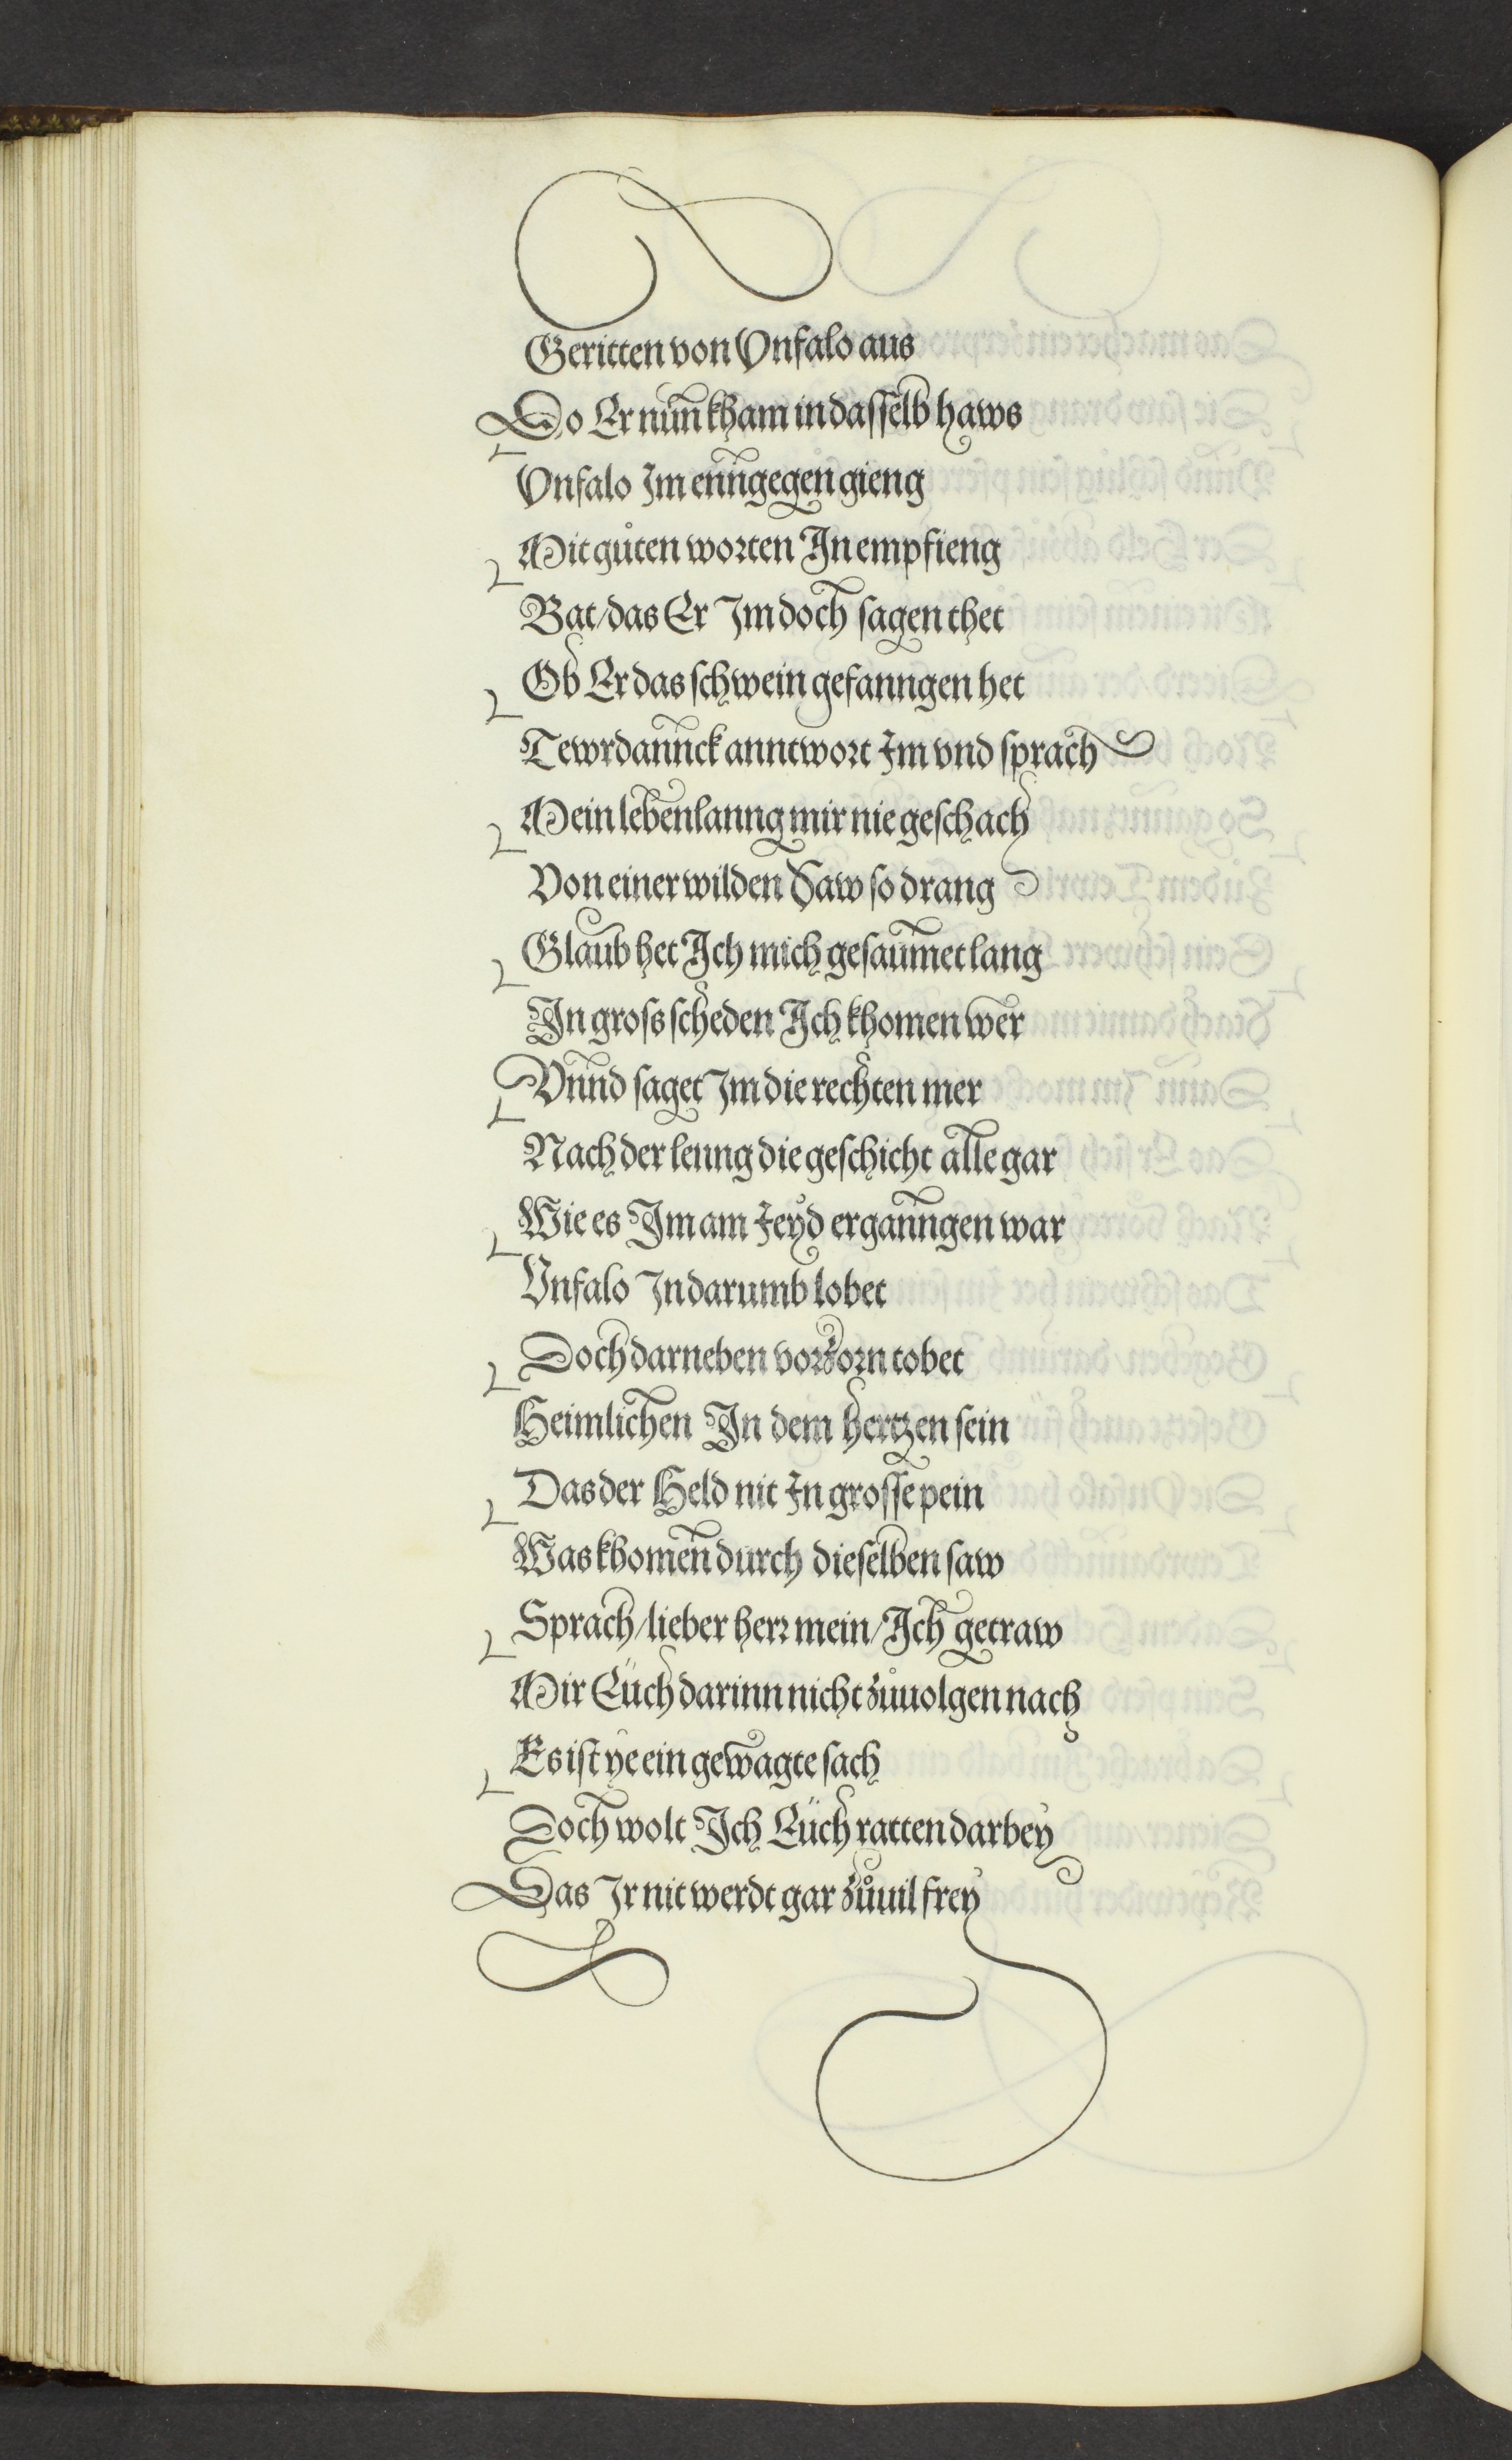 Geritten von Vnfalo aus
Do Er nun kham in dasſelb haws
Vnfalo Im enngegen gieng
Mit gůten worten In empfieng
Bat/das Er Im doch ſagen thet
Ob Er das ſchwein gefanngen het
Tewrdannck anntwort Im vnd ſprach
Mein lebenlanng mir nie geſchach
Von einer wilden Saw ſo drang
Glaub het Ich mich geſaumet lang
In groſs ſcheden Ich khomen wer
Vnnd ſaget Im die rechten mer
Nach der lenng die geſchicht alle gar
Wie es Im am Jeyd erganngen war
Vnfalo In darumb lobet
Doch darneben vor zorn tobet
Heimlichen In dem hertzen ſein
Das der Held nit In groſſe pein
Was khomen durch dieſelben ſaw
Sprach/lieber herr mein/Ich getraw
Mir Eüch darinn nicht zůuolgen nach
Es iſt ye ein gewagte ſach
Doch wolt Ich Eüch ratten darbey
Das Ir nit werdt gar zůuil frey